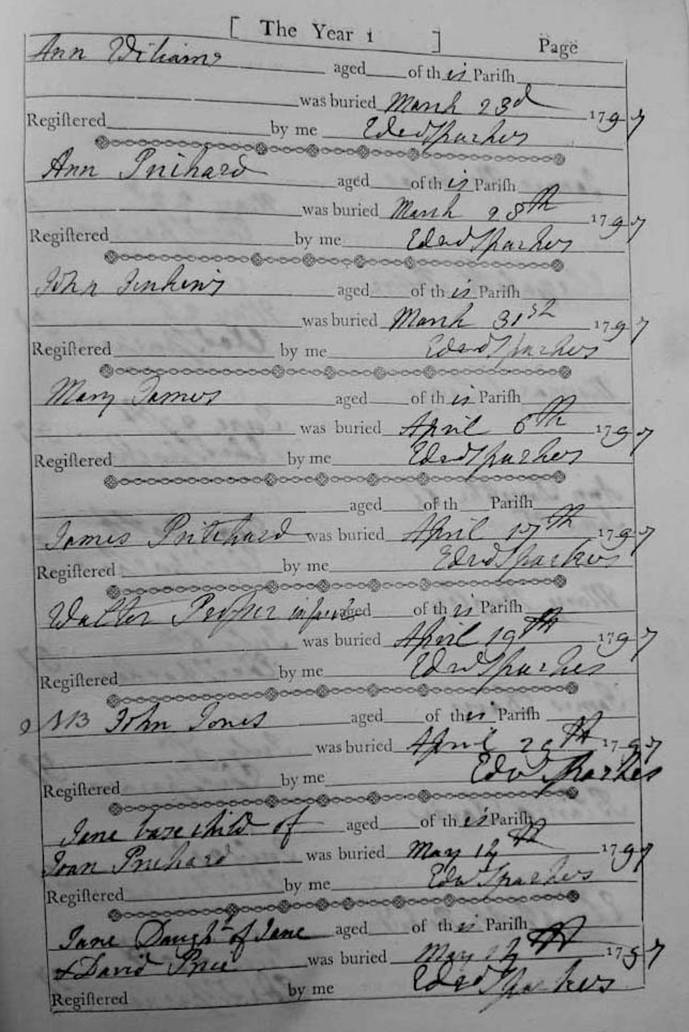 [ The Year 1 ] Page
Ann Wiliams aged of this Pariſh
was buried March 23d 1797
Regiſtered by me Edwd Sparkes
Ann Prichard aged of this Pariſh
was buried March 28th 1797
Regiſtered by me Edwd Sparkes
John Jenkins aged of this Pariſh
was buried March 31st 1797
Regiſtered by me Edwd Sparkes
Mary James aged of this Pariſh
was buried April 6th 1797
Regiſtered by me Edwd Sparkes
aged of th Pariſh
James Pritchard was buried April 17th 1797
Regiſtered by me Edwd Sparkes
Walter aged of this Pariſh
was buried April 19th 1797
Regiſtered by me Edwd Sparkes
John Jones aged of this Pariſh
was buried April 1797
Regiſtered by me Edwd Sparkes
Jane base child of aged of this Pariſh
Joan Prichard was buried May 1797
Regiſtered by me Edwd Sparkes
Jane Daught of Jane aged of this Pariſh
& David Price was buried May 1797
Regiſtered by me Edwd Sparkes